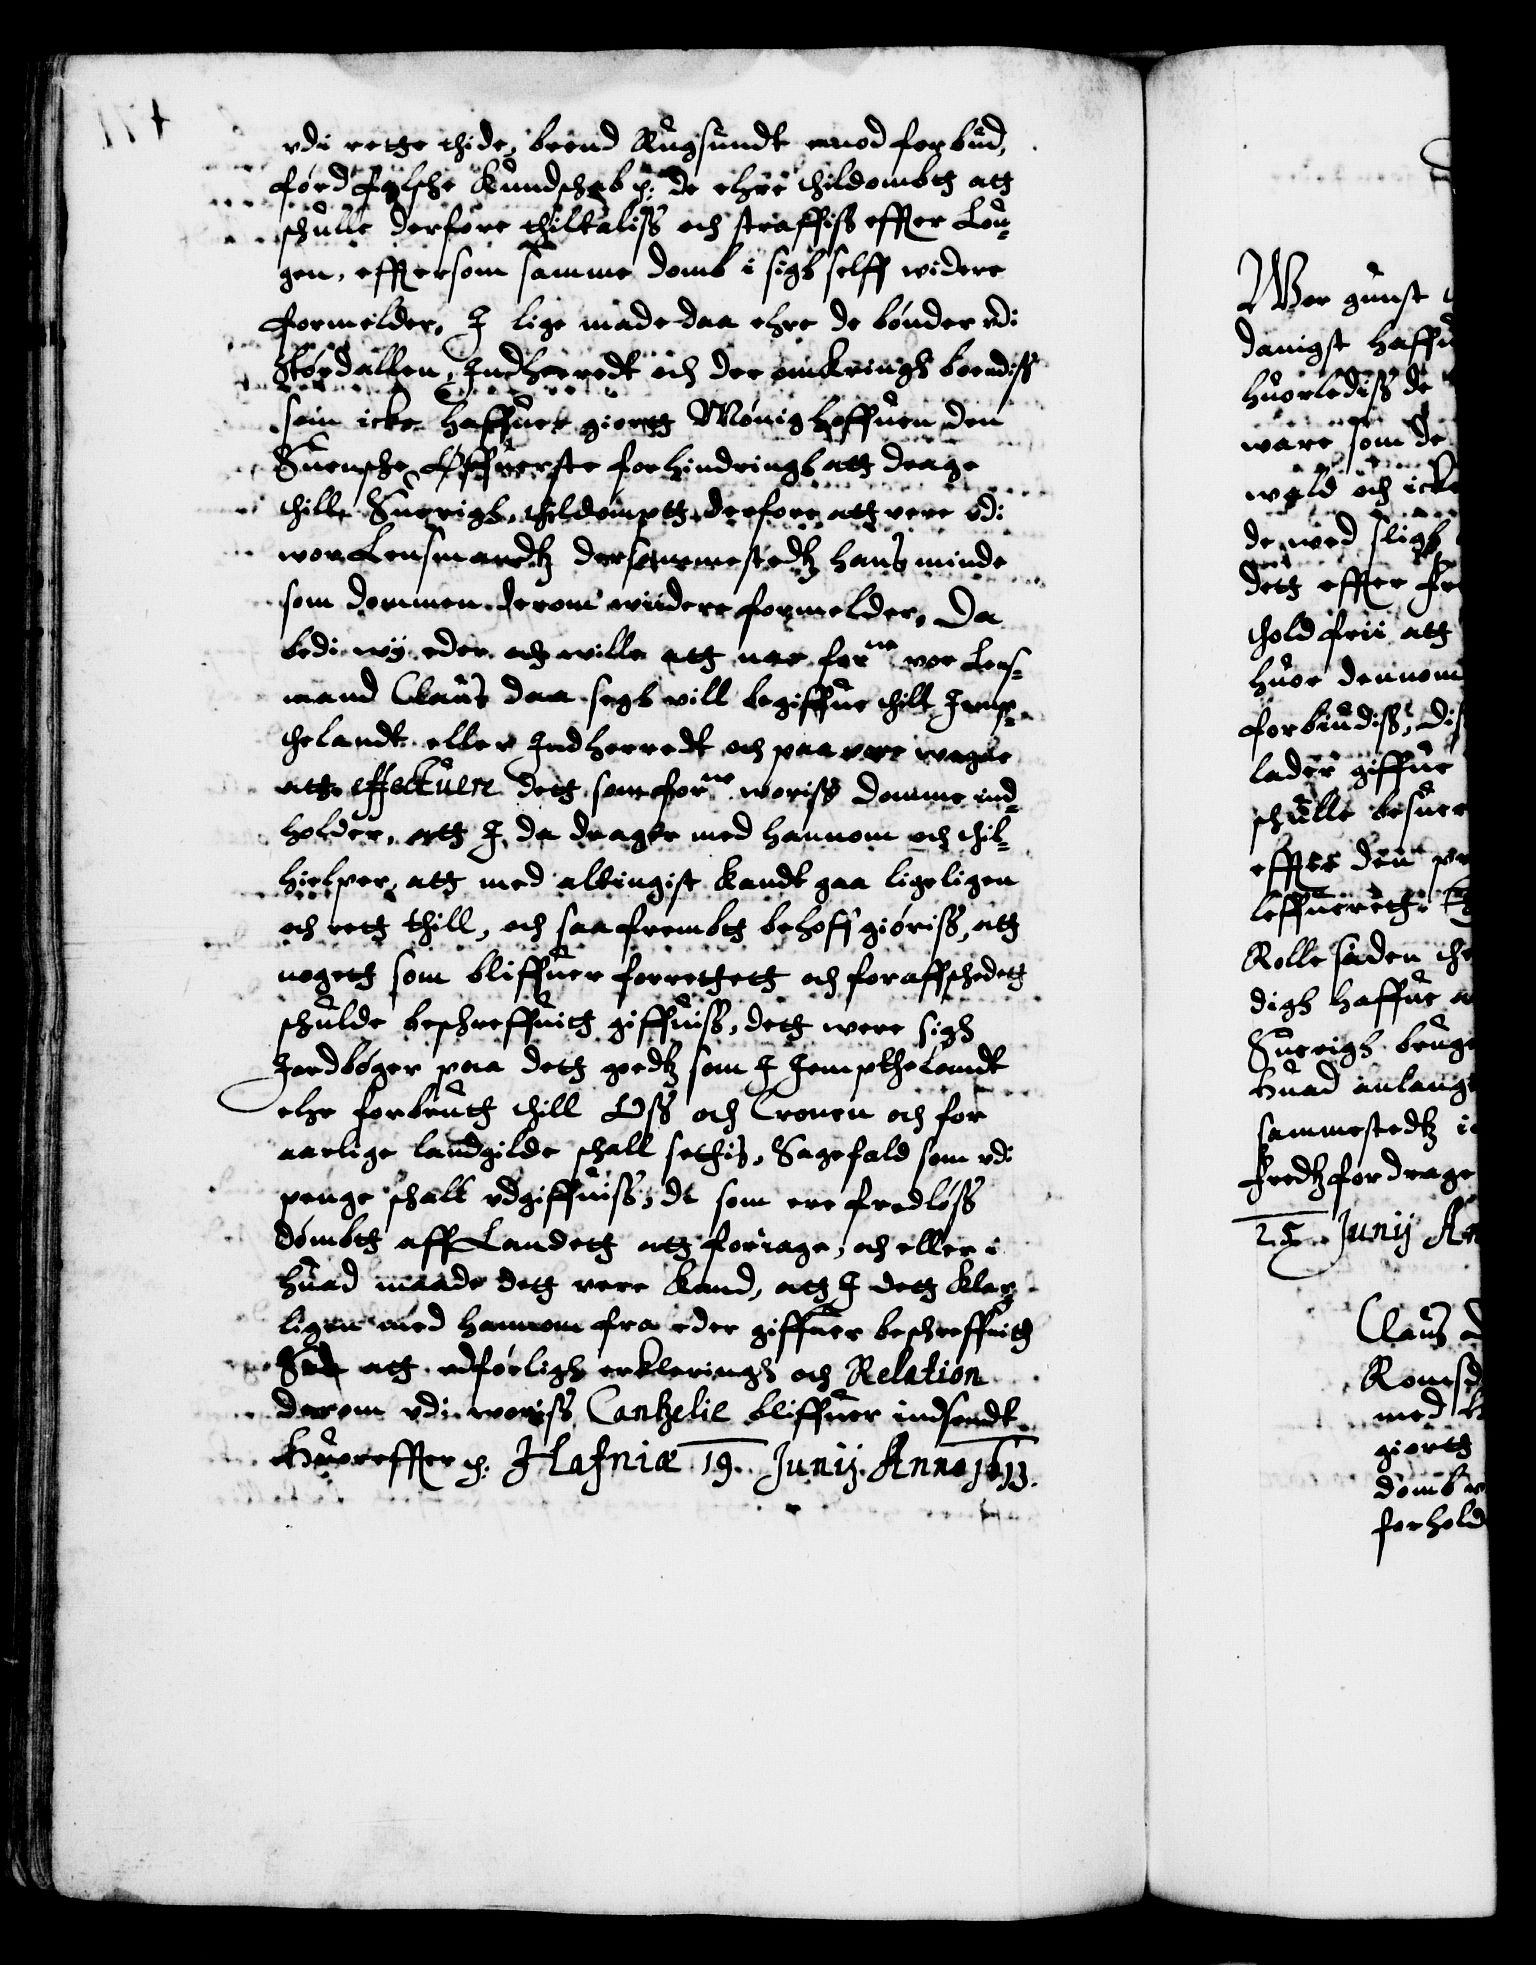 vdi rette thide, brend Rugsundt emod forbud,
førd falsche kundschab p: de ehre thildømbt att
schulle derfore thiltaliss och straffiss effter Lou-
gen, effersom samme domb i sigh selff widere
formelder, I lige made daa ehre de bønder vdi
Størdallen, Indherredt och der omkringh boendiss
som icke haffuer giortt Mønighoffuen den
Suensche Øffuerste forhindringh att drage
thill Suerigh, thildømptt derfore att vere vdi
wor Lensmandtz dersammestedtz hans minde
som dommen derom widere formelder, Da
bedi wy eder och wille att naar forne vor Lens-
mand Claus daa segh vill begiffue thill Jemp-
thelandt eller Indherredt och paa vore wegne
att effectuere dett som forne woriss domme ind-
holder, att I da drager med hannom och thil-
hielper, att med altingist kandt gaa ligeligen
och rett thill, och saa frembt behoff giøriss, att
nogett som bliffuer forrettett och foraffschedett
schulde beschreffuitt giffuiss, dett were sigh
Jordbøger paa dett goedtz som I Jempthelandt
ehr forbrutt thill Oss och Cronen och for
aarlige landgilde schall settis, Sagefald som vdi
penge schall vdgiffuiss, de som ere fredløss
dømbtt aff Landett att foriage, och eller i
huad maade dett vere kand, att I dett klar-
ligen med hannom fra eder giffuer beschreffuitt
att vdførligh erkleringh och Relation
derom vdi woriss Cantzelie bliffuer indsendt
Huoreffter p: Hafniæ 19. Junij Anno 1613.
Wor gunst
danigst haffu
huorlediss de
ware som de
wald och icke
de wed sligh
dett effter
thold frii att
huor dennom
forbiudiss,
lader giffue
schulle besuer
effter den
leffuerett
Rolle siden
digh haffue
Suerigh bruge
huad anlang
sammestedtz
fredtzfordrage
25. Junij
Claus
Romsd
med
giortt
domb
forhold